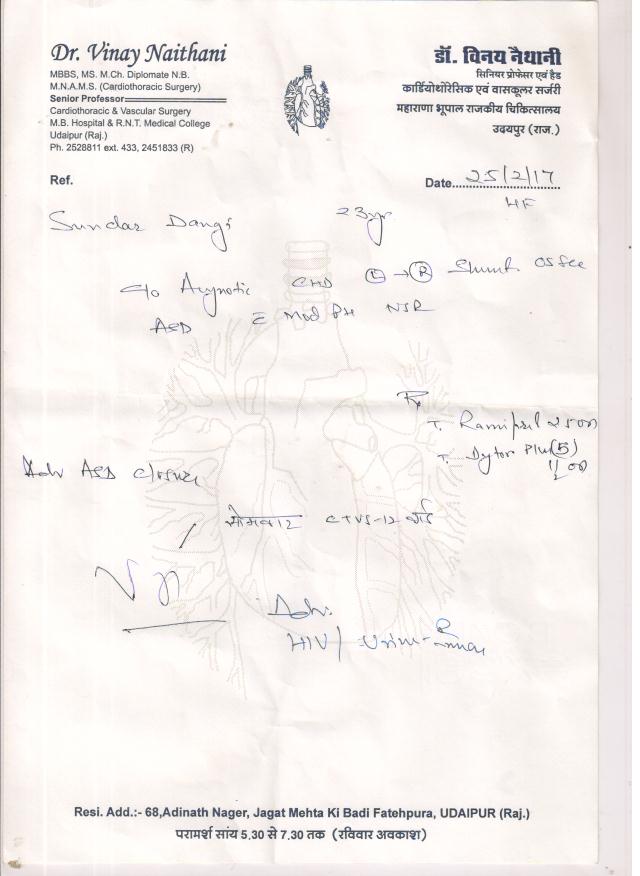 Dr. Vinay Naithani
MBBS, MS. M.Ch. Diplomate N.B.
M.N.A.M.S. (Cardiothoracic Surgery)
Senior Professor
Cardiothoracic & Vascular Surgery
M.B. Hospital & R.N.T. Medical College
Udaipur (Raj.)
Ph. 2528811 ext. 433, 2451833 (R)
डॉ. विनय नैथानी
सिनियर प्रोफेसर एवं हैड
कार्डियोथोरेसिक एवं वासकूलर सर्जरी
महाराणा भूपाल राजकीय चिकित्सालय
उदयपुर (राज.)
Ref.
Date 25/2/17
Sundar Dangi 23yr
c/o Acynotic CHD L → R Shunt
ASD c Mod PH NSR
Rx
T. Ramipril 2.5 OD
T. Dytor Plus (5)
1/2 OD
Adv ASD closure
सोमवार CTVS-12 वार्ड
Adv.
HIV/ Urine-
Resi. Add.:- 68,Adinath Nager, Jagat Mehta Ki Badi Fatehpura, UDAIPUR (Raj.)
परामर्श सांय 5.30 से 7.30 तक (रविवार अवकाश)